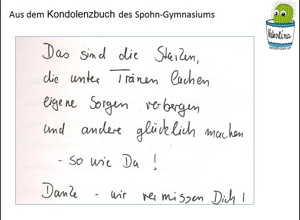 Aus dem Kondolenzbuch des Spohn-Gymnasiums
Valentina
Das sind die Starken,
die unter Tränen lachen
eigene Sorgen verbergen
und andere glücklich machen
- so wie Du !
Danke - wir vermissen Dich !